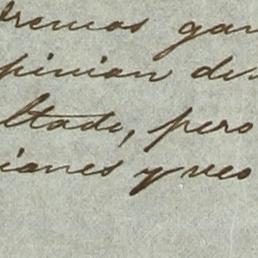 tremos gan
pinion de
ltado, pero
iones y veo